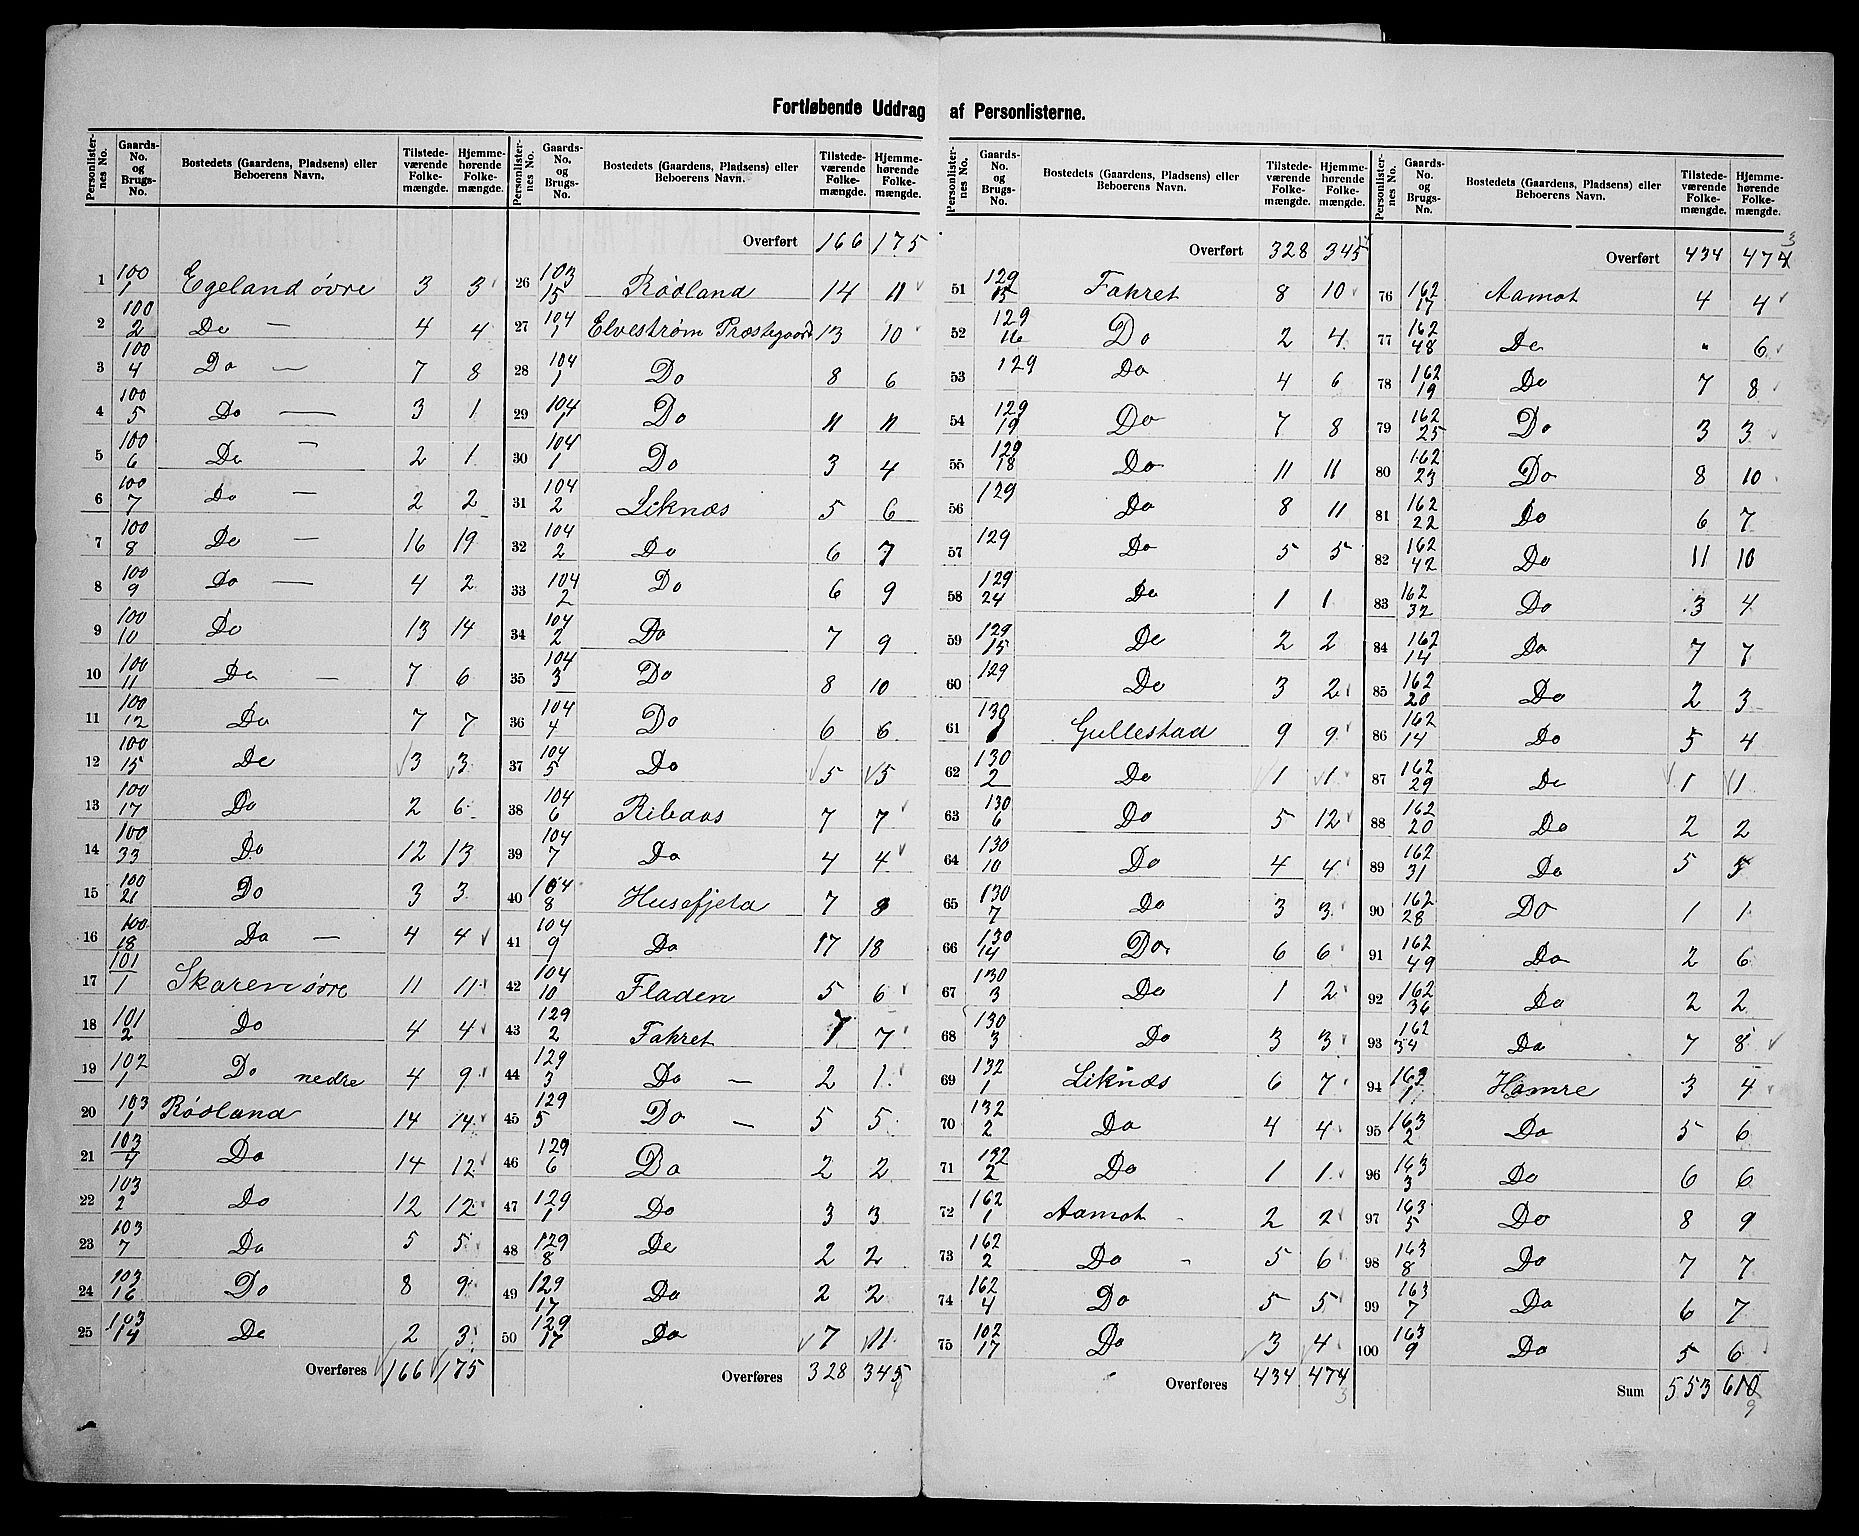 Fortløbende Uddrag af Personlisterne.
Personlisternes No. | Gaards-No. og Brugs-No. | Bostedets (Gaardens, Pladsens) eller Beboerens Navn. | Tilstedeværende Folkemængde. | Hjemmehørende Folkemængde.
1 100/1 Egeland øvre 3 3
2 100/2 Do — 4 4
3 100/4 Do — 7 8
4 100/5 Do — 3 1
5 100/6 Do — 2 1
6 100/7 Do — 2 2
7 100/8 Do — 16 19
8 100/9 Do — 4 2
9 100/10 Do 13 14
10 100/11 Do — 7 6
11 100/12 Do 7 7
12 100/15 Do 3 3
13 100/17 Do 2 6
14 100/33 Do 12 13
15 100/21 Do 3 3
16 100/18 Do — 4 4
17 101/1 Skaren øvre 11 11
18 101/2 Do 4 4
19 102/1 Do nedre 4 9
20 103/1 Rödland 14 14
21 103/4 Do 14 12
22 103/2 Do 12 12
23 103/7 Do 5 5
24 103/16 Do 8 9
25 103/14 Do 2 3
Overføres 166 175
Personlisternes No. | Gaards-No. og Brugs-No. | Bostedets (Gaardens, Pladsens) eller Beboerens Navn. | Tilstedeværende Folkemængde. | Hjemmehørende Folkemængde.
Overført 166 175
26 103/15 Rödland 14 11
27 104/1 Elvestrøm Præstegaard 13 10
28 104/1 Do 8 6
29 104/1 Do 11 11
30 104/1 Do 3 4
31 104/2 Liknæs 5 6
32 104/2 Do 6 7
33 104/2 Do 6 9
34 104/2 Do 7 9
35 104/3 Do 8 10
36 104/4 Do 6 6
37 104/5 Do 5 5
38 104/6 Ribaas 7 7
39 104/7 Do 4 4
40 104/8 Husefjeld 7 8
41 104/9 Do 17 18
42 104/10 Fladen 5 6
43 129/2 Fakret 7 7
44 129/3 Do — 2 1
45 129/5 Do — 5 5
46 129/6 Do 2 2
47 129/1 Do 3 3
48 129/8 Do 2 2
49 129/17 Do 2 2
50 129/17 Do 7 11
Overføres 328 345
Personlisternes No. | Gaards-No. og Brugs-No. | Bostedets (Gaardens, Pladsens) eller Beboerens Navn. | Tilstedeværende Folkemængde. | Hjemmehørende Folkemængde.
Overført 328 345
51 129/15 Fakret 8 10
52 129/16 Do 2 4
53 129 Do 4 6
54 129/19 Do 7 8
55 129/18 Do 11 11
56 129 Do 8 11
57 129 Do 5 5
58 129/24 Do 1 1
59 129/15 Do 2 2
60 129 Do 3 2
61 130 Gullestad 9 9
62 130/2 Do 1 1
63 130/6 Do 5 12
64 130/10 Do 4 4
65 130/7 Do 3 3
66 130/14 Do 6 6
67 130/3 Do 1 2
68 130/3 Do 3 3
69 132/1 Liknæs 6 7
70 132/2 Do 4 4
71 132/2 Do 1 1
72 162/1 Aamot - 2 2
73 162/2 Do - 5 6
74 162/4 Do 5 5
75 102/17 Do 3 4
Overføres 434 474
3
Personlisternes No. | Gaards-No. og Brugs-No. | Bostedets (Gaardens, Pladsens) eller Beboerens Navn. | Tilstedeværende Folkemængde. | Hjemmehørende Folkemængde.
3
Overført 434 474
76 162/17 Aamot 4 4
77 162/48 Do " 6
78 162/19 Do 7 8
79 162/25 Do 3 3
80 162/23 Do 8 10
81 162/22 Do 6 7
82 162/42 Do 11 10
83 162/32 Do 3 4
84 162/14 Do 7 7
85 162/20 Do 2 3
86 162/14 Do 5 4
87 162/29 Do 1 1
88 162/20 Do 2 2
89 162/31 Do 5 5
90 162/28 Do 1 1
91 162/49 Do 2 6
92 162/36 Do 2 2
93 162/34 Do 7 8
94 163/1 Hamre 3 4
95 163/2 Do 5 6
96 163/3 Do 6 6
97 163/5 Do 8 9
98 163/8 Do 7 7
99 163/7 Do 6 7
100 163/9 Do 5 6
Sum 553 610
9